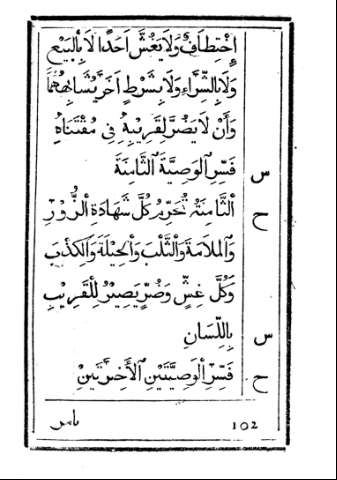 إِخْتِطَافٍ وَلَا يَغُشَّ اَحَدًا لَا بِالْبَيْعِ
وَلَا بِالشِّرَاءِ وَلَا بِشَرْطٍ اَخَرَ يُشَابِهُهُمَا
وَأَنْ لَا يَضُرَّ لِقَرِيبِهِ فِي مُقْتَنَاهُ
س فَسِّرِ الْوَصِيَّةَ الثَّامِنَةَ
ح اَلثَّامِنَةُ تُحَرِّمُ كُلَّ شَهَادَةِ الزُّورِ
وَالْمَلَامَةِ وَالثَّلْبِ وَالْحِيلَةِ وَالْكِذْبِ
وَكُلَّ غِشٍّ وَضُرٍّ يَصِيرُ لِلْقَرِيبِ
بِاللِّسَانِ
س فَسِّرِ الْوَصِيَّتَيْنِ الْأَخِيرَتَيْنِ
ح
102